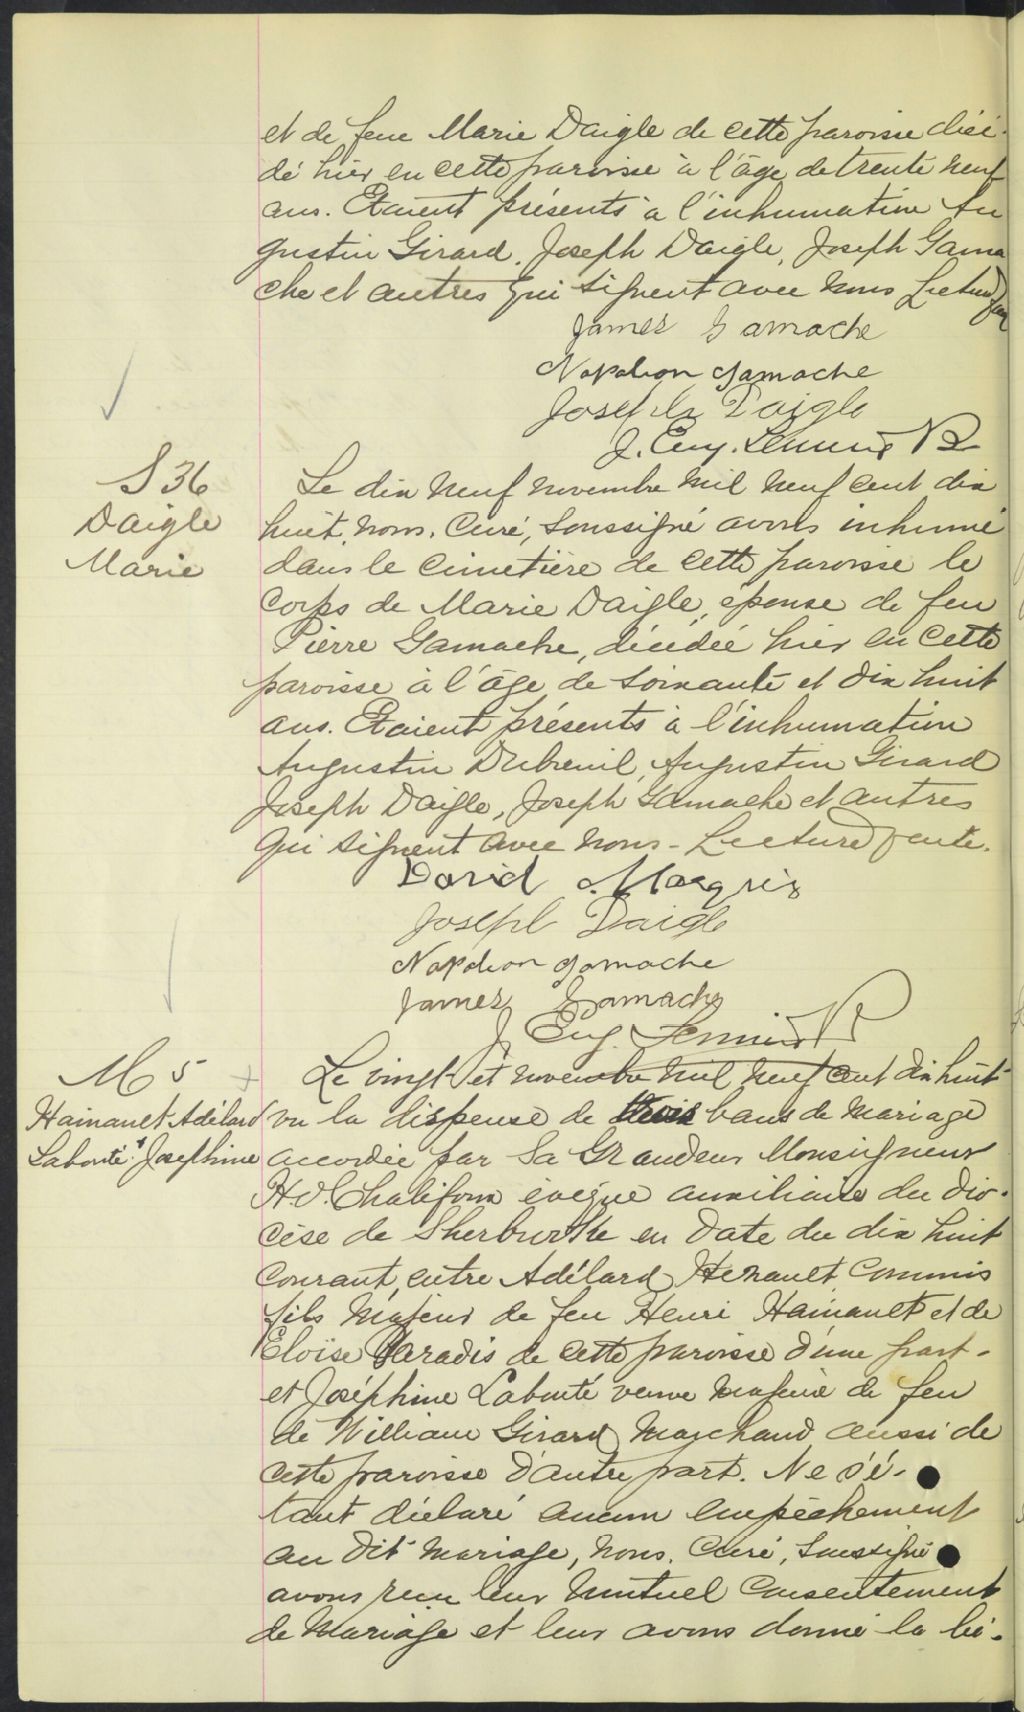 et de feue Marie Daigle de cette paroisse décé-
dé hier en cette paroisse à l'âge de trente neuf
ans. Etaient présents à l'inhumation Au
gustin Girard, Joseph Daigle, Joseph Gama
che et autres qui signent avec nous Lecture
James Gamache
Napoleon Gamache
Joseph Daigle
J. Eug.
S 36
Daigle
Marie
Le dix neuf novembre mil neuf cent dix
huit, nous, Curé, soussigné avons inhumé
dans le cimetière de cette paroisse le
Corps de Marie Daigle, épouse de feu
Pierre Gamache, décédée hier en cette
paroisse à l'âge de soixante et dix huit
ans. Etaient présents à l'inhumation
Augustin Dubreuil, Augustin Girard
Joseph Daigle, Joseph Gamache et autres
qui signent avec nous - Lecture faite.
David Marquis
Joseph Daigle
Napoleon Gamache
James Gamache
J. Eug.
M 5
Hainault Adélard
Labonté + Josephine
Le vingt et novembre mil neuf cent dix huit
vu la dispense de trois bans de mariage
accordée par Sa Grandeur Monseigneur
H.O. Chalifoux évêque auxiliaire du dio-
cèse de Sherbrooke en date du dix huit
Courant, entre Adélard Henault Commis
fils majeur de feu Henri Hainault et de
Eloïse Paradis de cette paroisse d'une part -
et Joséphine Labonté veuve majeure de feu
de William Girard, Marchand aussi de
cette paroisse d'autre part. Ne s'é-
tant déclaré aucun empêchement
au dit mariage, nous, Curé, soussigné
avons reçu leur mutuel consentement
de mariage et leur avons donné la bé-